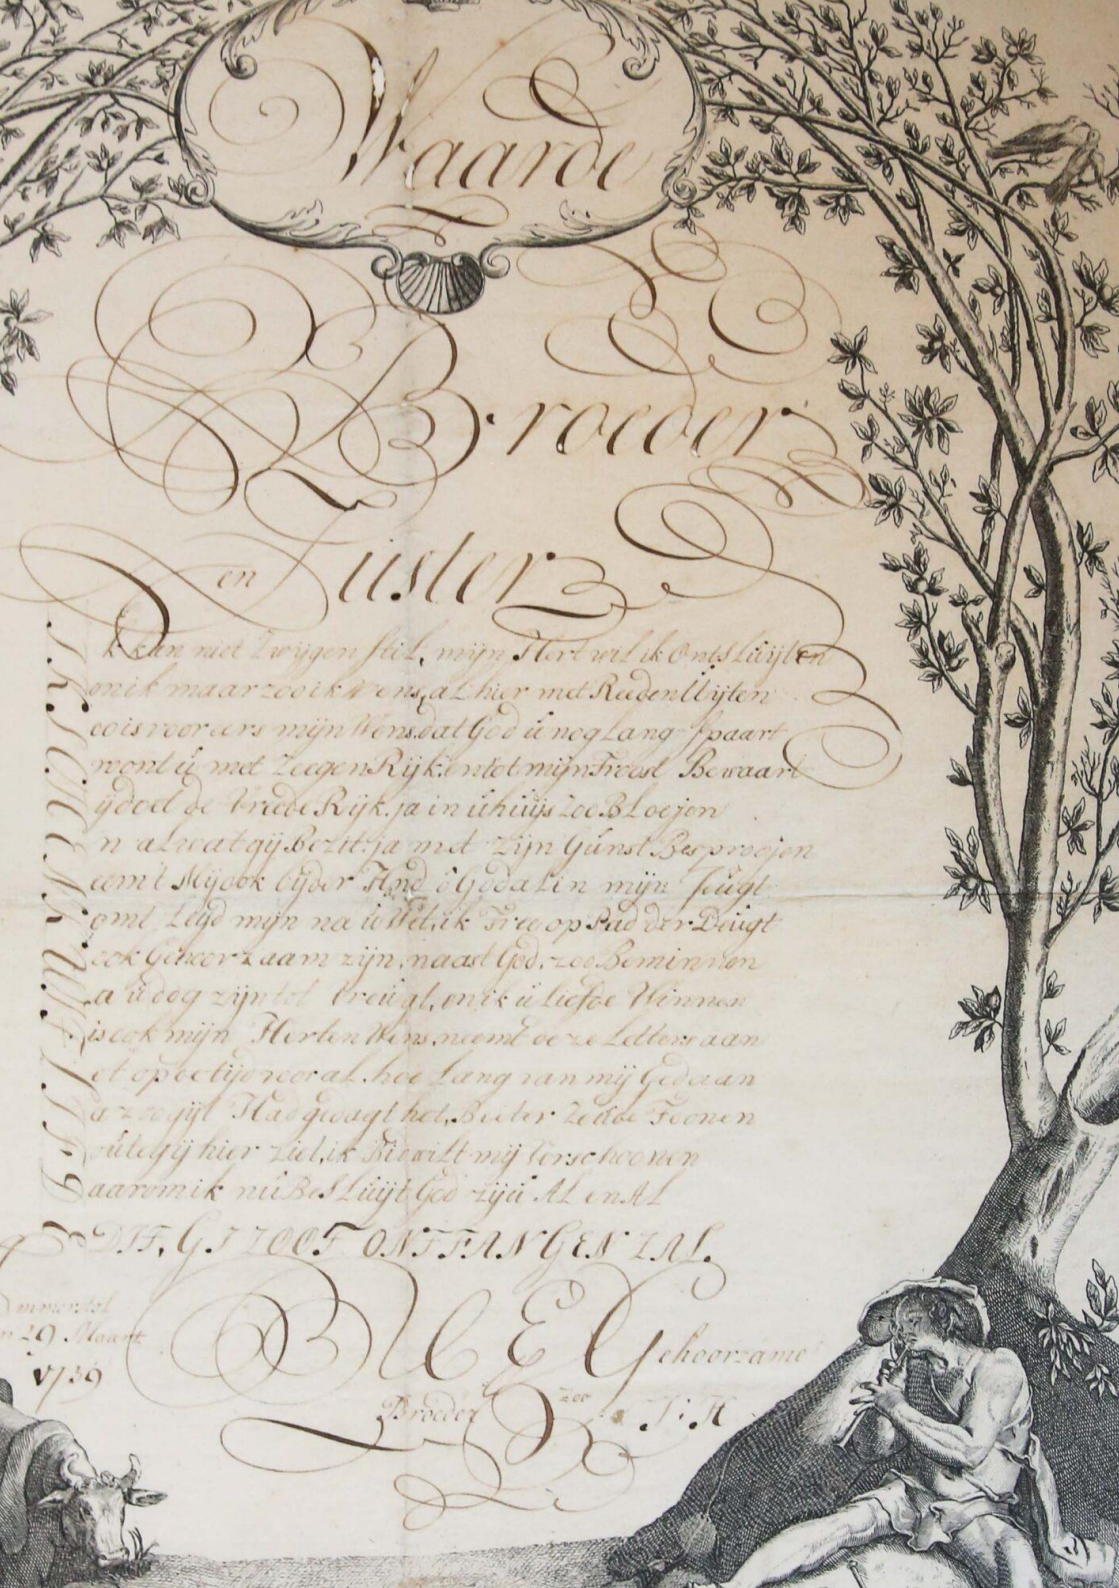 Waarde
Broeder
en Zuster
Ik kan niet Zwijgen stil, mijn Hert wil ik Ontsluijten
en ik maar zoo ik wens, al hier met Reeden Uijten
voor eers mijn Wens, dat God ú nog Lang Spaart
ú met Zeegen Rijk, en tot mijn Troost Bewaart
de Vreede Rijk, ja in ú huijs zoo Bloejen
En al wat gij Bezit, ja met Zijn Gúnst Besproejen
Neemt Mij ook bij der Hand ó God al in mijn Jeúgt
Komt Leijd mijn na ú Wet, ik Tree op Pad der Deúgt
Ook Gehoorzaam zijn, naast God, zoo Beminnen
ú dog zijn tot Vreúgt, en ik ú Liefde Winnen
is ook mijn Herten Wens, neemt deeze Letters aan
op de tijd vooral, hoe Lang van mij Gedaan
zoo gijt Had gedagt het, Beeter Zedde Toonen
gij hier Ziet, ik Bid wilt mij Verschoonen
Daarom ik nú Beslúijt God zij ú Al en Al
DIT, GI ZOOT ONTFANGEN ZAL.
29 Maart
1739
U E Gehoorzame
Broeder Zoo
J : H